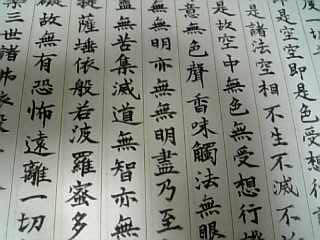 是空空即是色受想
是諸法空相不生不滅不
是故空中無色無受想行
意無色聲香味觸法無眼
無無明亦無無明盡乃至
盡無苦集滅道無智亦無
提薩埵依般若波羅蜜多
礙故無有恐怖遠離一切
三世諸佛依般